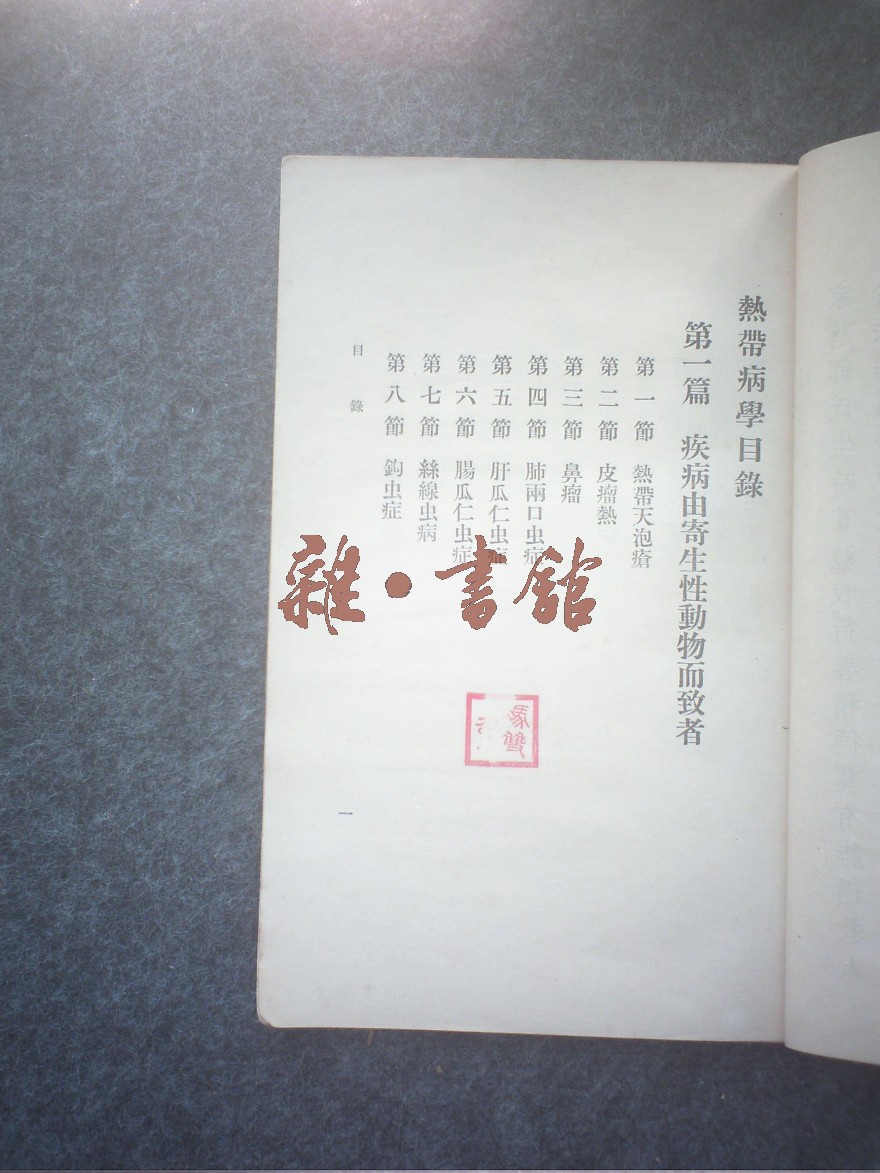 熱帶病學目錄
第一篇 疾病由寄生性動物而致者
第一節 熱帶天泡瘡
第二節 皮瘤熱
第三節 鼻瘤
第四節 肺兩口虫症
第五節 肝瓜仁虫症
第六節 腸瓜仁虫症
第七節 絲線虫病
第八節 鈎虫症
目錄
一
雜·書館